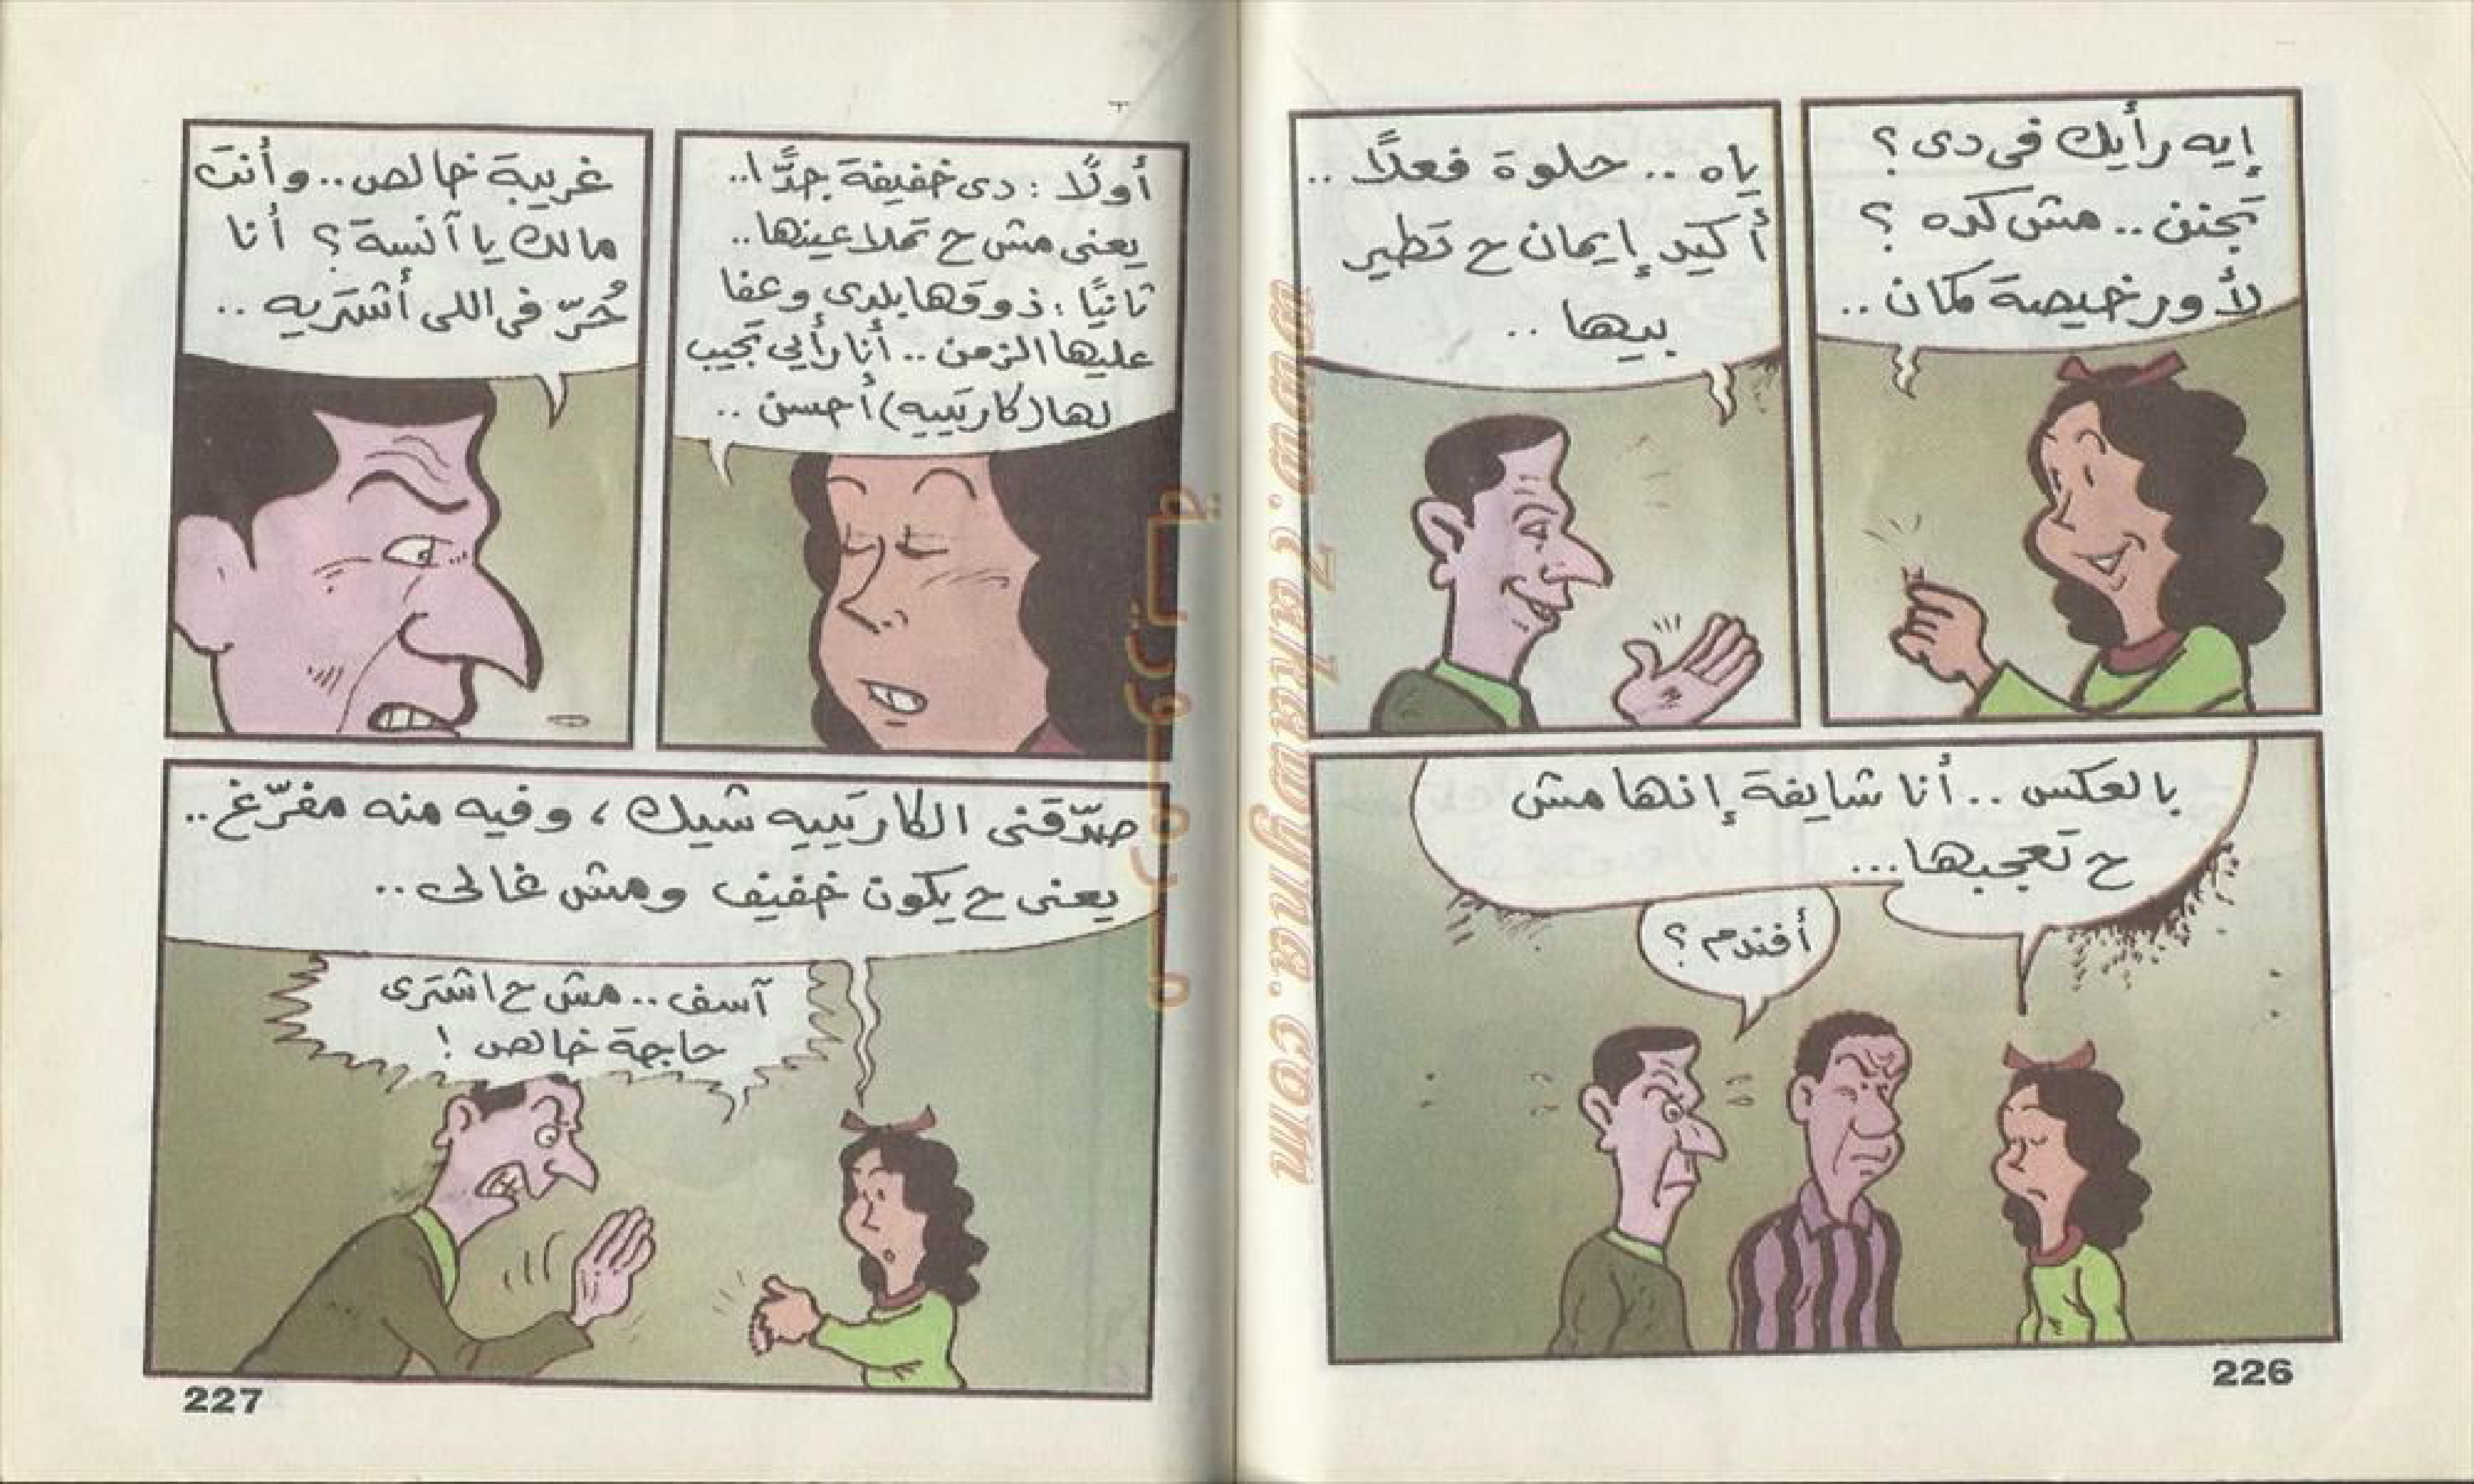 إيه رأيك فى دى ؟
تجنن .. مش كده ؟
لأ ورخيصة كمان ..
ياه .. حلوة فعلًا ..
أكيد إيمان ح تطير
بيها ..
بالعكس .. أنا شايفة إنها مش
ح تعجبها ...
أفندم ؟
226
أولًا : دى خفيفة جدًّا ..
يعنى مش ح تملا عينها ..
ثانيًا : ذوقها بلدى وعفا
عليها الزمن .. أنا رأيي تجيب
لها (كارتييه) أحسن ..
غريبة خالص .. وأنتَ
مالك يا آنسة ؟ أنا
حُرّ فى اللى أشتريه ..
صدّقنى الكارتييه شيك ، وفيه منه مفرّغ ..
يعنى ح يكون خفيف ومش غالى ..
آسف .. مش ح اشترى
حاجة خالص !
227